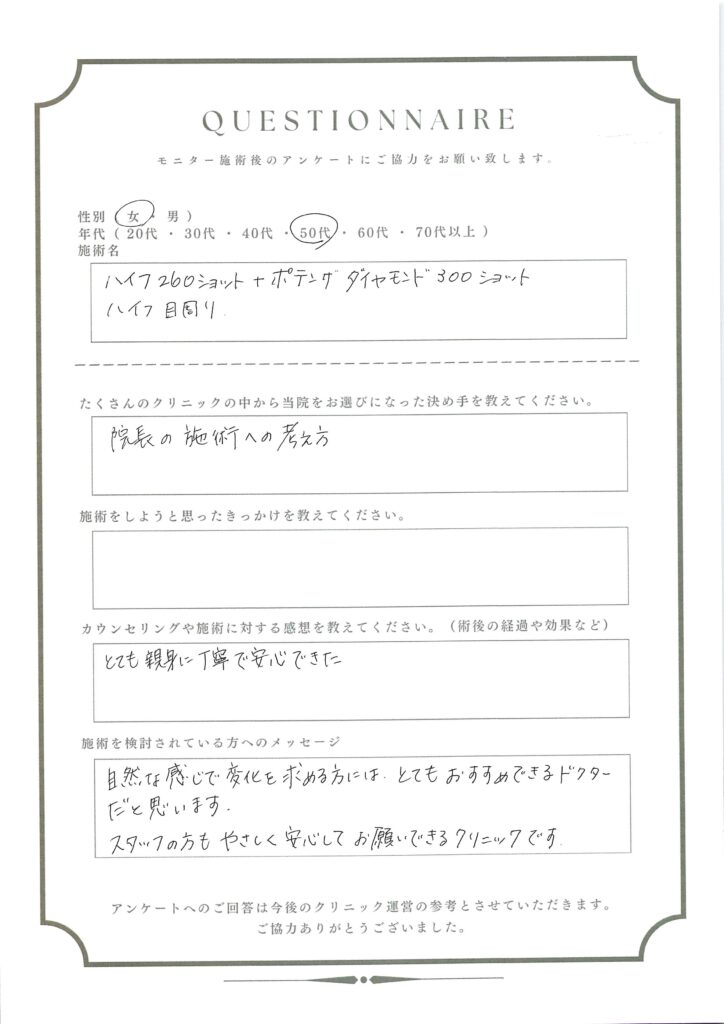 QUESTIONNAIRE
モニター施術後のアンケートにご協力をお願い致します。
性別（ 女 ・ 男 ）
年代（ 20代 ・ 30代 ・ 40代 ・ 50代 ・ 60代 ・ 70代以上 ）
施術名
ハイフ260ショット + ポテンザ ダイヤモンド 300ショット
ハイフ 目周り.
たくさんのクリニックの中から当院をお選びになった決め手を教えてください。
院長の施術への考え方
施術をしようと思ったきっかけを教えてください。
カウンセリングや施術に対する感想を教えてください。（術後の経過や効果など）
とても親身に丁寧で安心できた
施術を検討されている方へのメッセージ
自然な感じで変化を求める方には、とてもおすすめできるドクター
だと思います.
スタッフの方も やさしく 安心して お願いできるクリニックです.
アンケートへのご回答は今後のクリニック運営の参考とさせていただきます。
ご協力ありがとうございました。